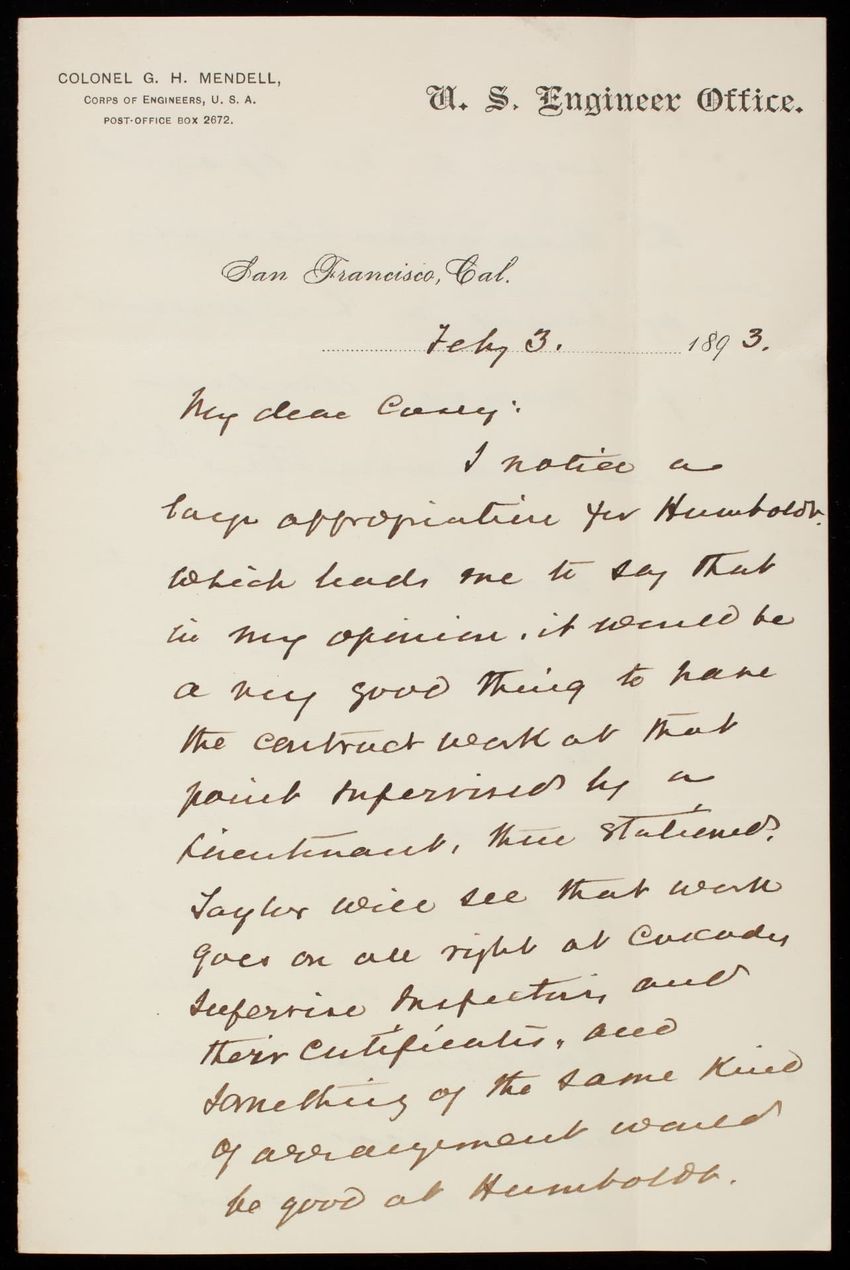 COLONEL G. H. MENDELL,
CORPS OF ENGINEERS, U. S. A.
POST-OFFICE BOX 2672.
U. S. Engineer Office.
San Francisco, Cal.
Feby 3. 1893.
My dear Casey:
I notice a
large appropriation for Humboldt.
which leads me to say that
in my opinion, it would be
a very good thing to have
the contract work at that
point supervised by a
Lieutenant, there stationed.
Taylor will see that work
goes on all right at Cascades
supervise Inspectors, and
their certificates, and
something of the same kind
of arrangement would
be good at Humboldt.